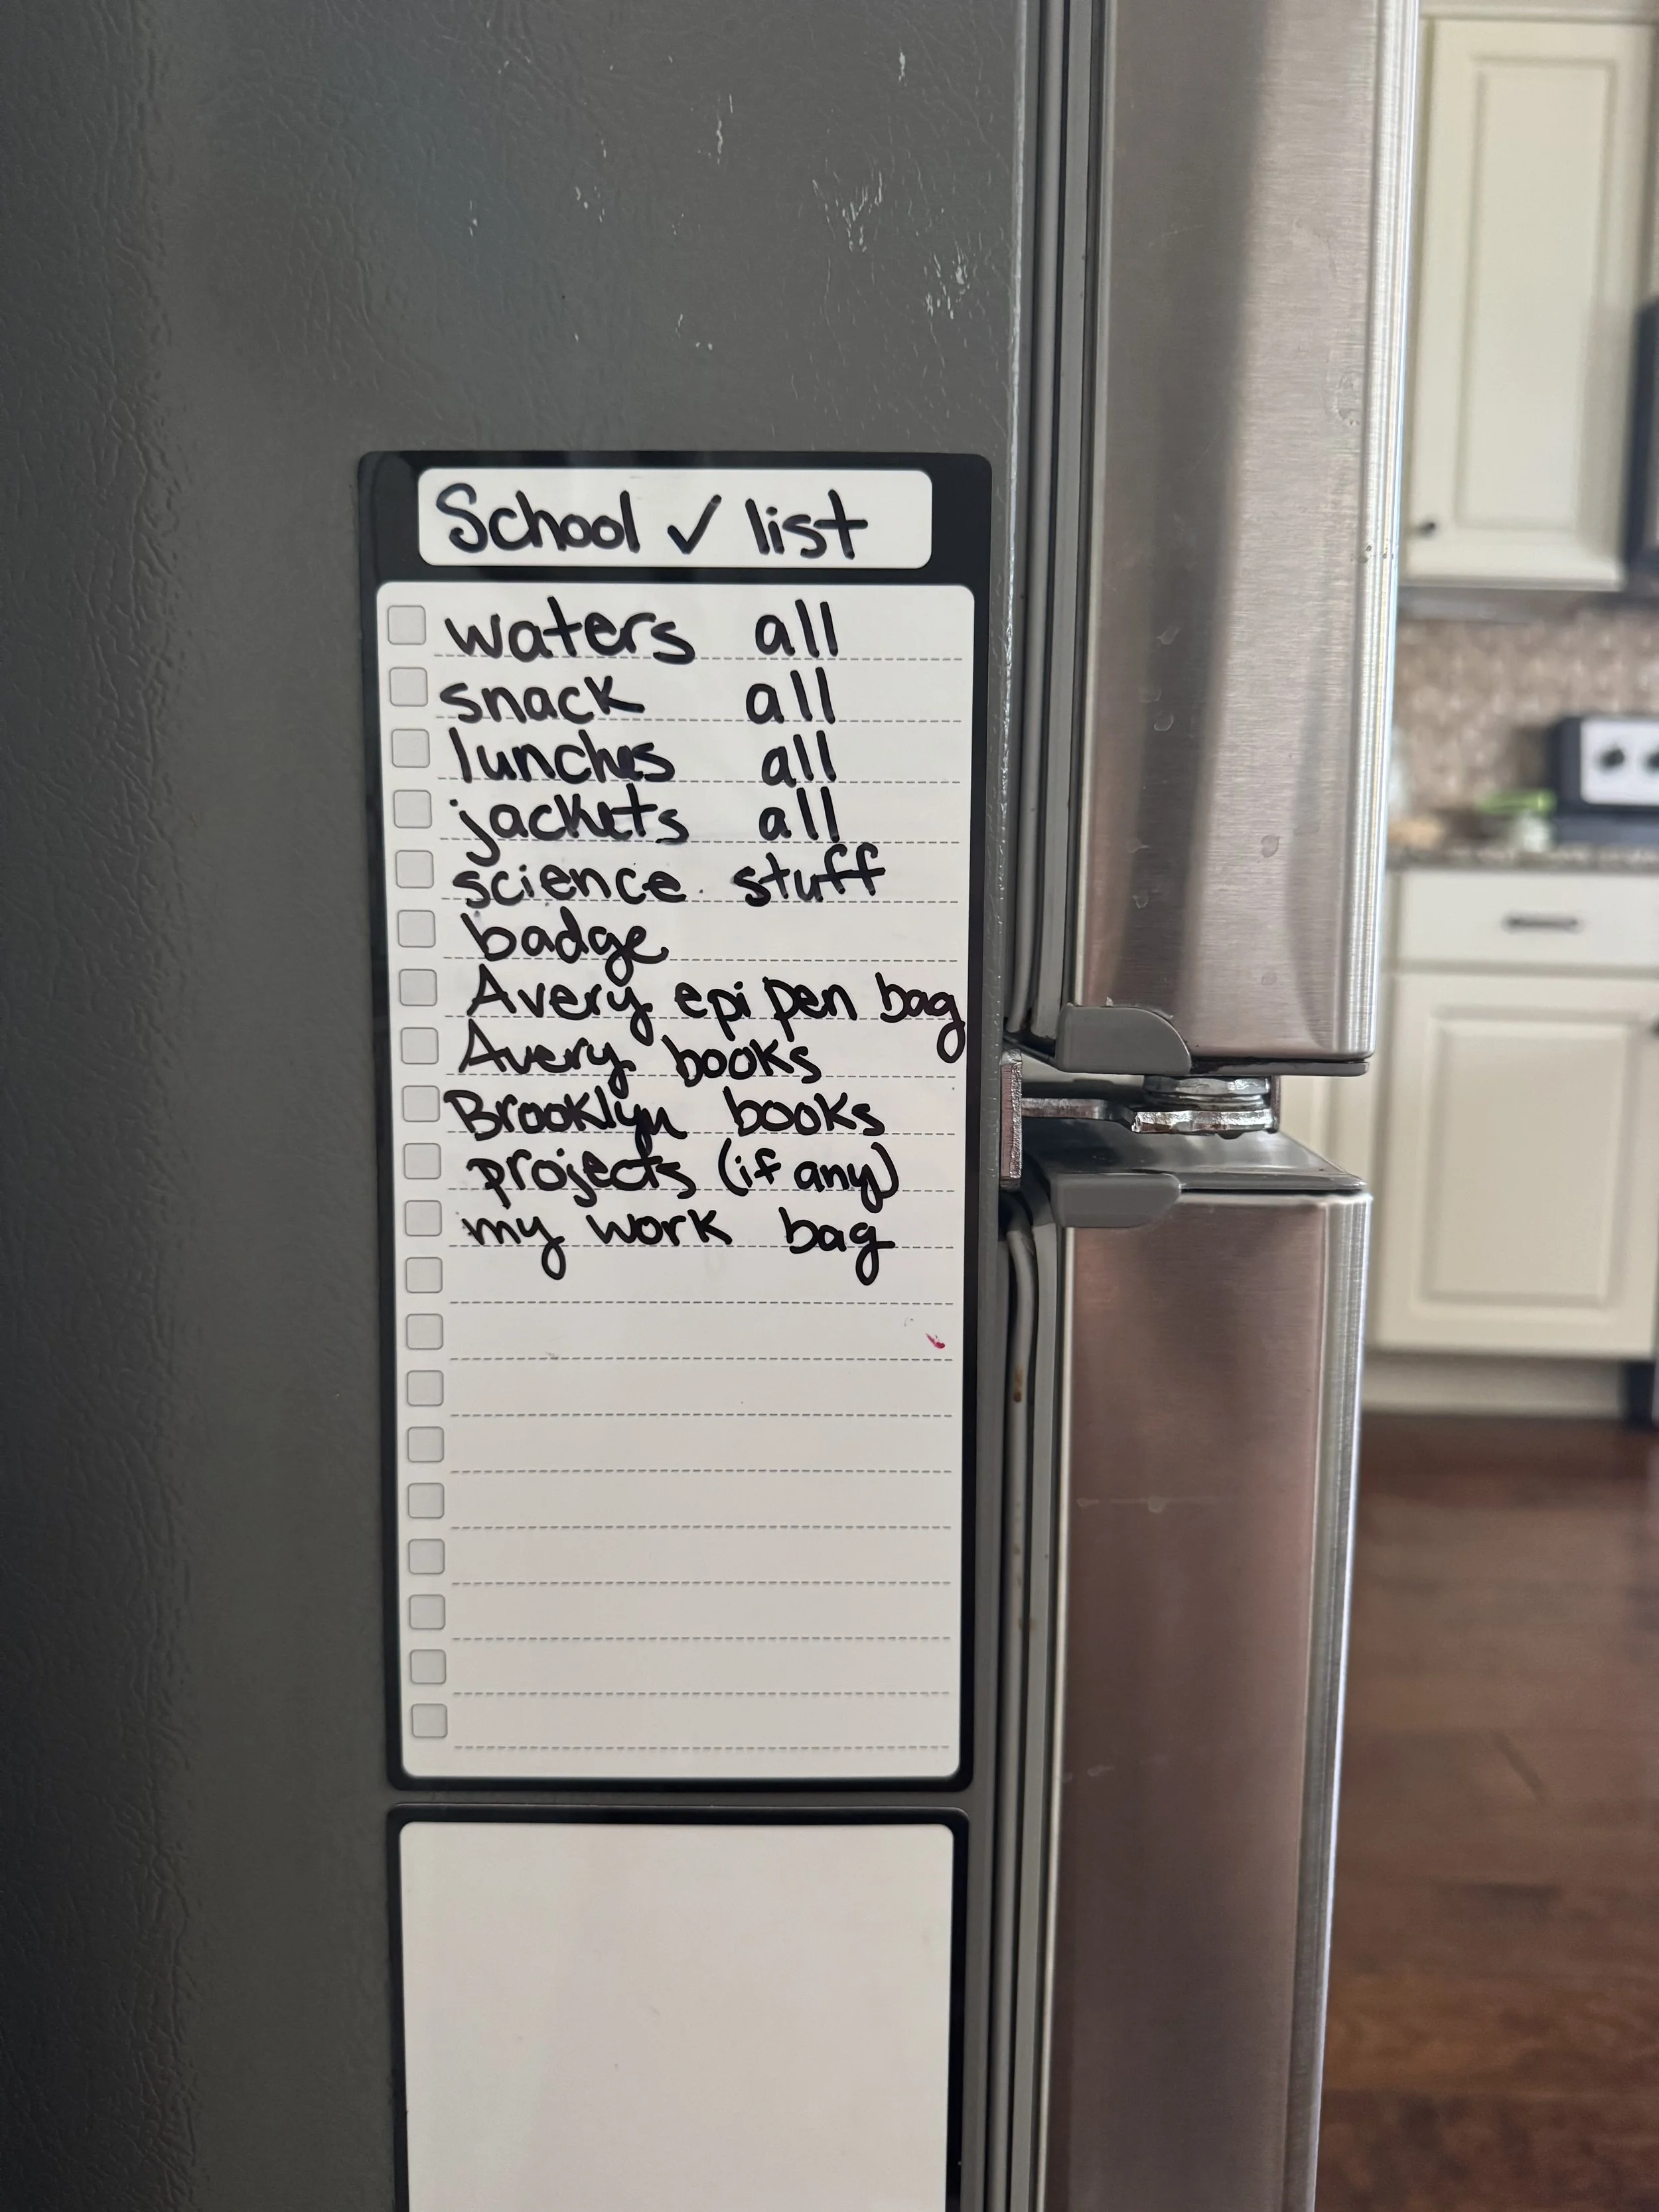 School ✓ list
waters all
snack all
lunches all
jackets all
science stuff
badge
Avery epi pen bag
Avery books
Brooklyn books
projects (if any)
my work bag